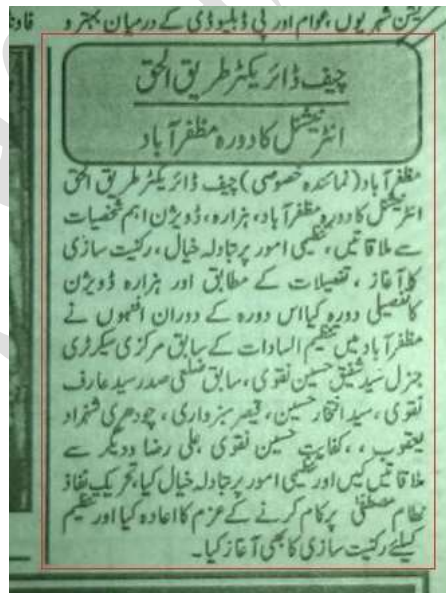 یشن شہریوں، عوام اور پی ڈبلیو ڈی کے درمیان بہترو
چیف ڈائریکٹر طریق الحق
انٹرنیشنل کا دورہ مظفرآباد
مظفرآباد (نمائندہ خصوصی) چیف ڈائریکٹر طریق الحق
انٹرنیشنل کا دورہ مظفرآباد، ہزارہ، ڈویژن اہم شخصیات
سے ملاقاتیں، تنظیمی امور پر تبادلہ خیال، رکنیت سازی
کا آغاز، تفصیلات کے مطابق اور ہزارہ ڈویژن
کا تفصیلی دورہ کیا اس دورہ کے دوران انھوں نے
مظفرآباد میں تنظیم السادات کے سابق مرکزی سیکرٹری
جنرل سید شفیق حسین نقوی، سابق ضلعی صدر سید عارف
نقوی، سید افتخار حسین، قیصر سبزواری، چودھری شہزاد
یعقوب،، کفایت حسین نقوی، علی رضا ودیگر سے
ملاقاتیں کیں اور تنظیمی امور پر تبادلہ خیال کیا، تحریک نفاذ
نظام مصطفیٰ پر کام کرنے کے عزم کا اعادہ کیا اور تنظیم
کیلئے رکنیت سازی کا بھی آغاز کیا۔